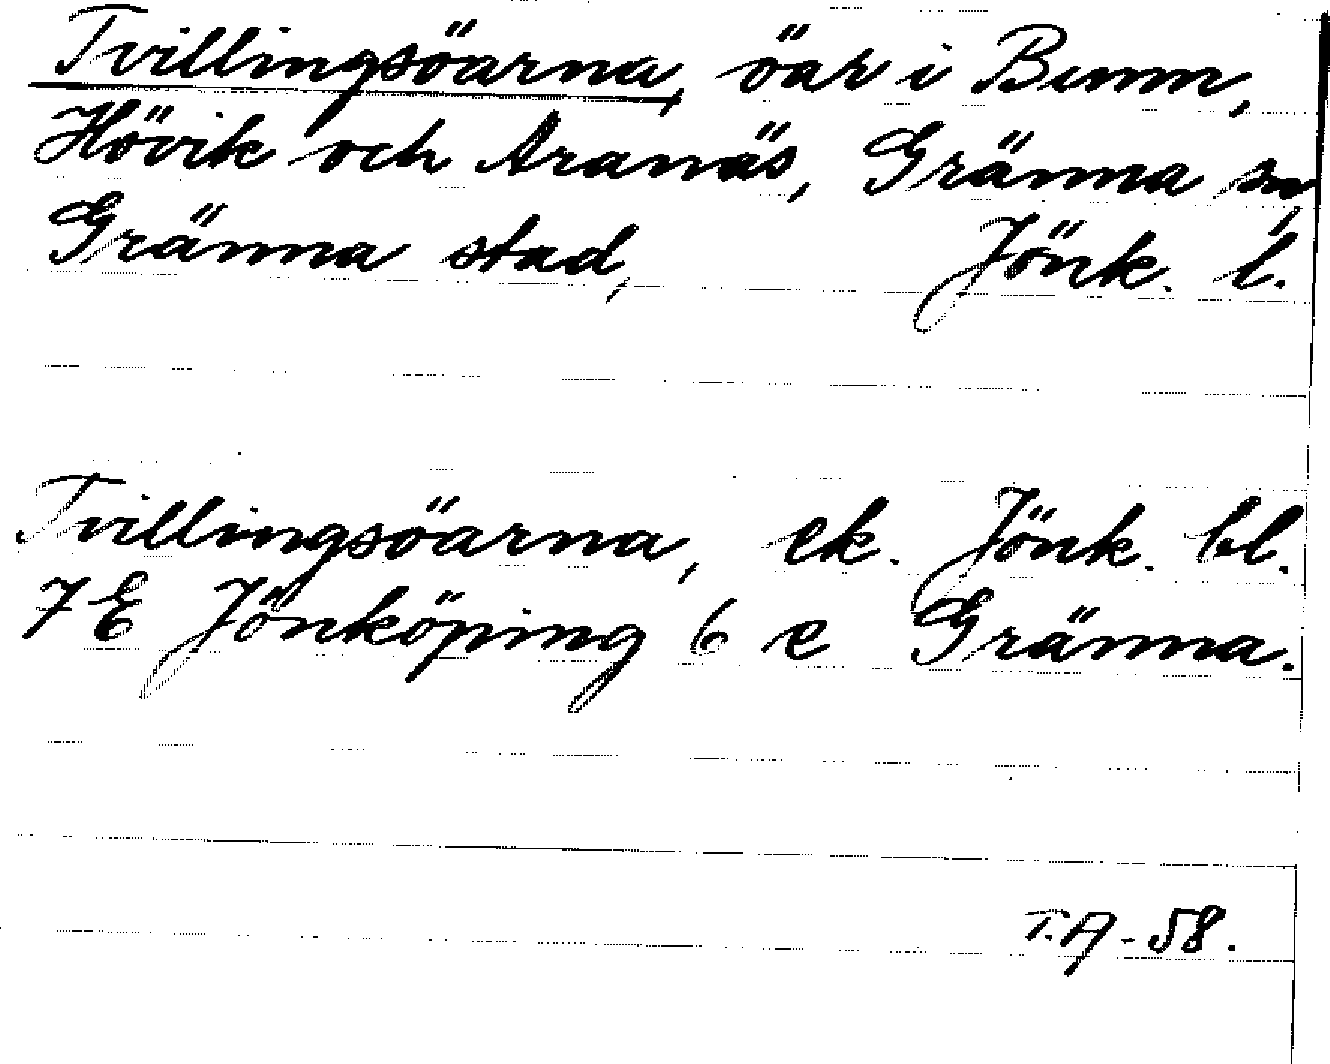 Tvillingsöarna, öar i Bunn,
Hövik och Aranäs, Gränna sn,
Gränna stad, Jönk. l.
Tvillingsöarna, ek. Jönk. bl.
7 E Jönköping 6 e Gränna.
T.A - 58.